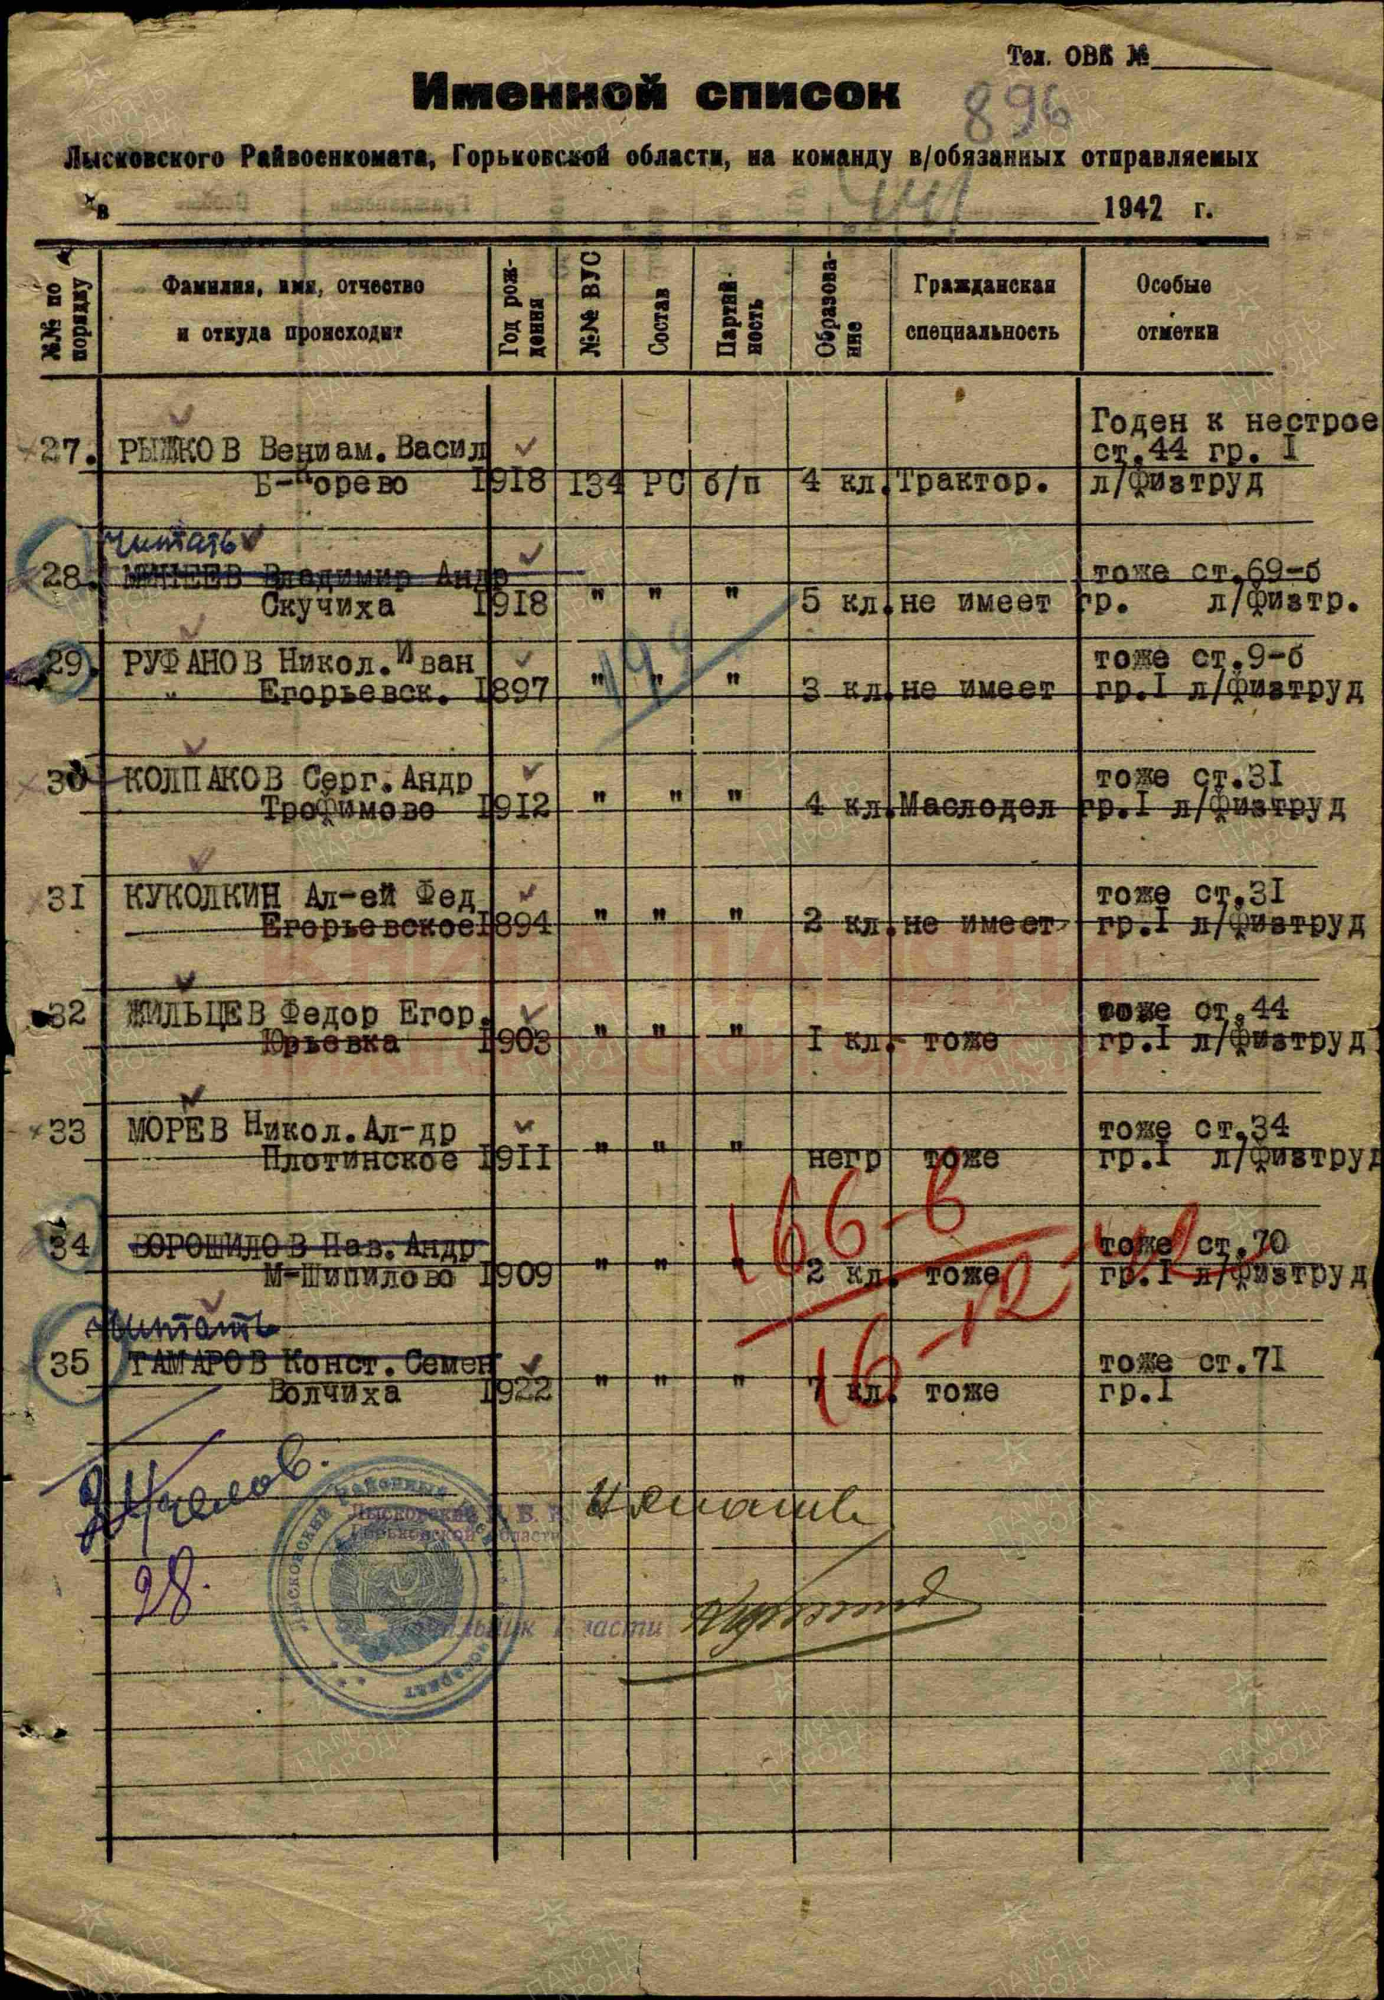 Тел. ОВК №
Именной список
896
Лысковского Райвоенкомата, Горьковской области, на команду в/обязанных отправляемых
в 1942 г.
№№ по порядку
Фамилия, имя, отчество и откуда происходит
Год рождения
№№ ВУС
Состав
Партийность
Образование
Гражданская специальность
Особые отметки
Годен к нестрое
27. РЫЖКОВ Вениам. Васил ст.44 гр. I
Б-Корево 1918 134 РС б/п 4 кл. Трактор. л/физтруд
читать
28. МИНЕЕВ Владимир Андр тоже ст.69-б
Скучиха 1918 " " " 5 кл. не имеет гр. л/физтр.
29. РУФАНОВ Никол. Иван тоже ст.9-б
" Егорьевск. 1897 " " " 3 кл. не имеет гр.I л/физтруд
30 КОЛПАКОВ Серг. Андр тоже ст.31
Трофимово 1912 " " " 4 кл. Маслодел гр.I л/физтруд
31 КУКОЛКИН Ал-ей Фед тоже ст.31
Егорьевское 1894 " " " 2 кл. не имеет гр.I л/физтруд
КНИГА ПАМЯТИ
32 ЖИЛЬЦЕВ Федор Егор. тоже ст.44
Юрьевка 1903 " " " I кл. тоже гр.I л/физтруд
НИЖЕГОРОДСКОЙ ОБЛАСТИ
33 МОРЕВ Никол. Ал-др тоже ст.34
Плотинское 1911 " " " негр тоже гр.I л/физтруд
166-в
34 ВОРОШИЛОВ Пав. Андр тоже ст.70
М-Шипилово 1909 " " " 2 кл. тоже гр.I л/физтруд
16-12-42
читать
35 ТАМАРОВ Конст. Семен тоже ст.71
Волчиха 1922 " " " 7 кл. тоже гр.I
Лысковский Р. В. К.
Горьковской области
28.
Начальник 1 части
ПАМЯТЬ НАРОДА